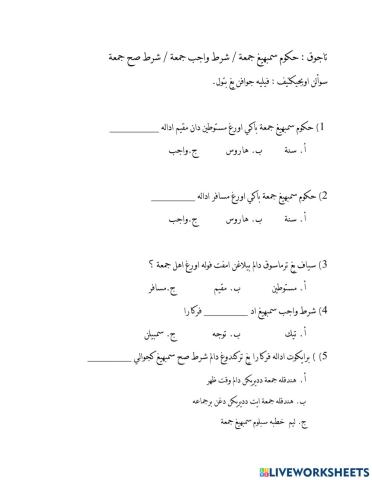 تاجوق : حكوم سمبهيڠ جمعة / شرط واجب جمعة / شرط صح جمعة
سوألن اوبجيكتيف : ڤيليه جواڤن يڠ بتول.
1) حكوم سمبهيڠ جمعة باݢي اورڠ مستوطين دان مقيم اداله __________
أ. سنة ب. هاروس ج.واجب
2) حكوم سمبهيڠ جمعة باݢي اورڠ مسافر اداله __________
أ. سنة ب. هاروس ج.واجب
3) سياڤ يڠ ترماسوق دالم بيلاڠن امڤت ڤوله اورڠ اهل جمعة ؟
أ. مستوطين ب. مقيم ج.مسافر
4) شرط واجب سمبهيڠ اد __________ ڤركارا
أ. تيݢ ب. توجه ج. سمبيلن
5) ) برايكوت اداله ڤركارا يڠ تركندوڠ دالم شرط صح سمبهيڠ كچوالي __________
أ. هندقله جمعة ددريكن دالم وقت ظهر
ب. هندقله جمعة ايت ددريكن دڠن برجماعه
ج. تيم خطبه سبلوم سمبهيڠ جمعة
LIVEWORKSHEETS